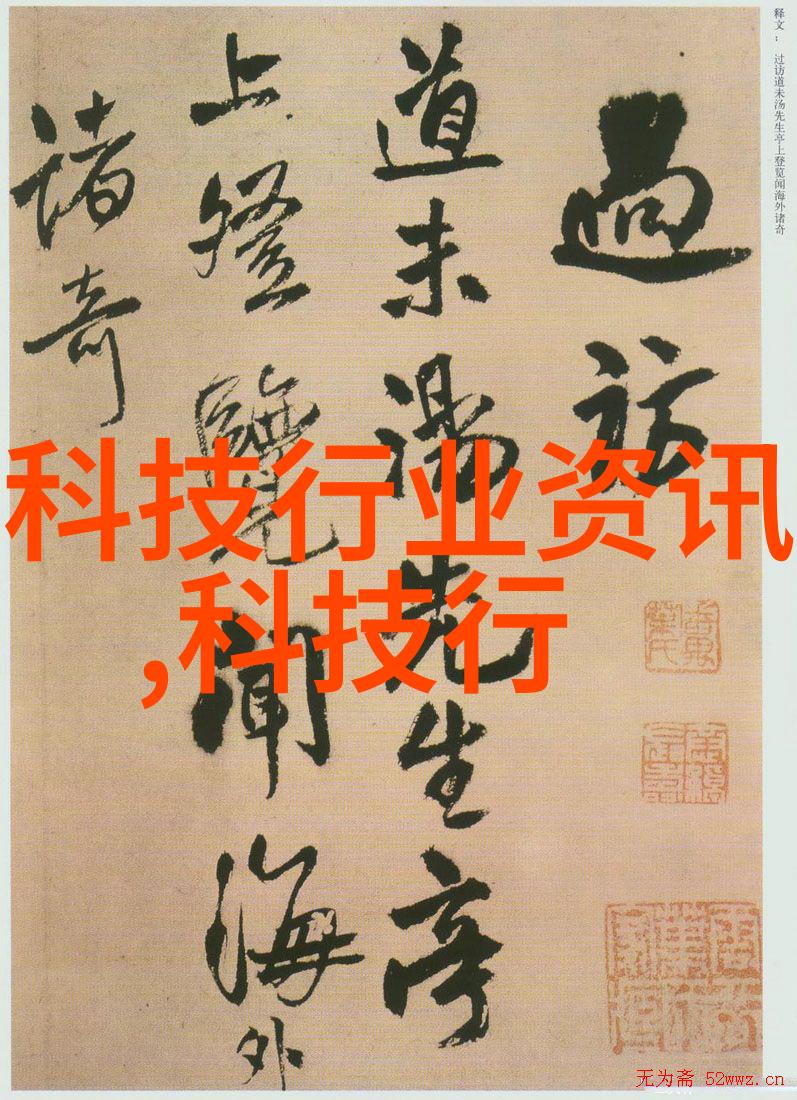 释文： 过访道未汤先生亭上登览闻海外诸奇
過訪
道未湯先生亭
上登覽聞海外
諸奇
科技行业资讯
,科技行
无为斋 52wwz.cn